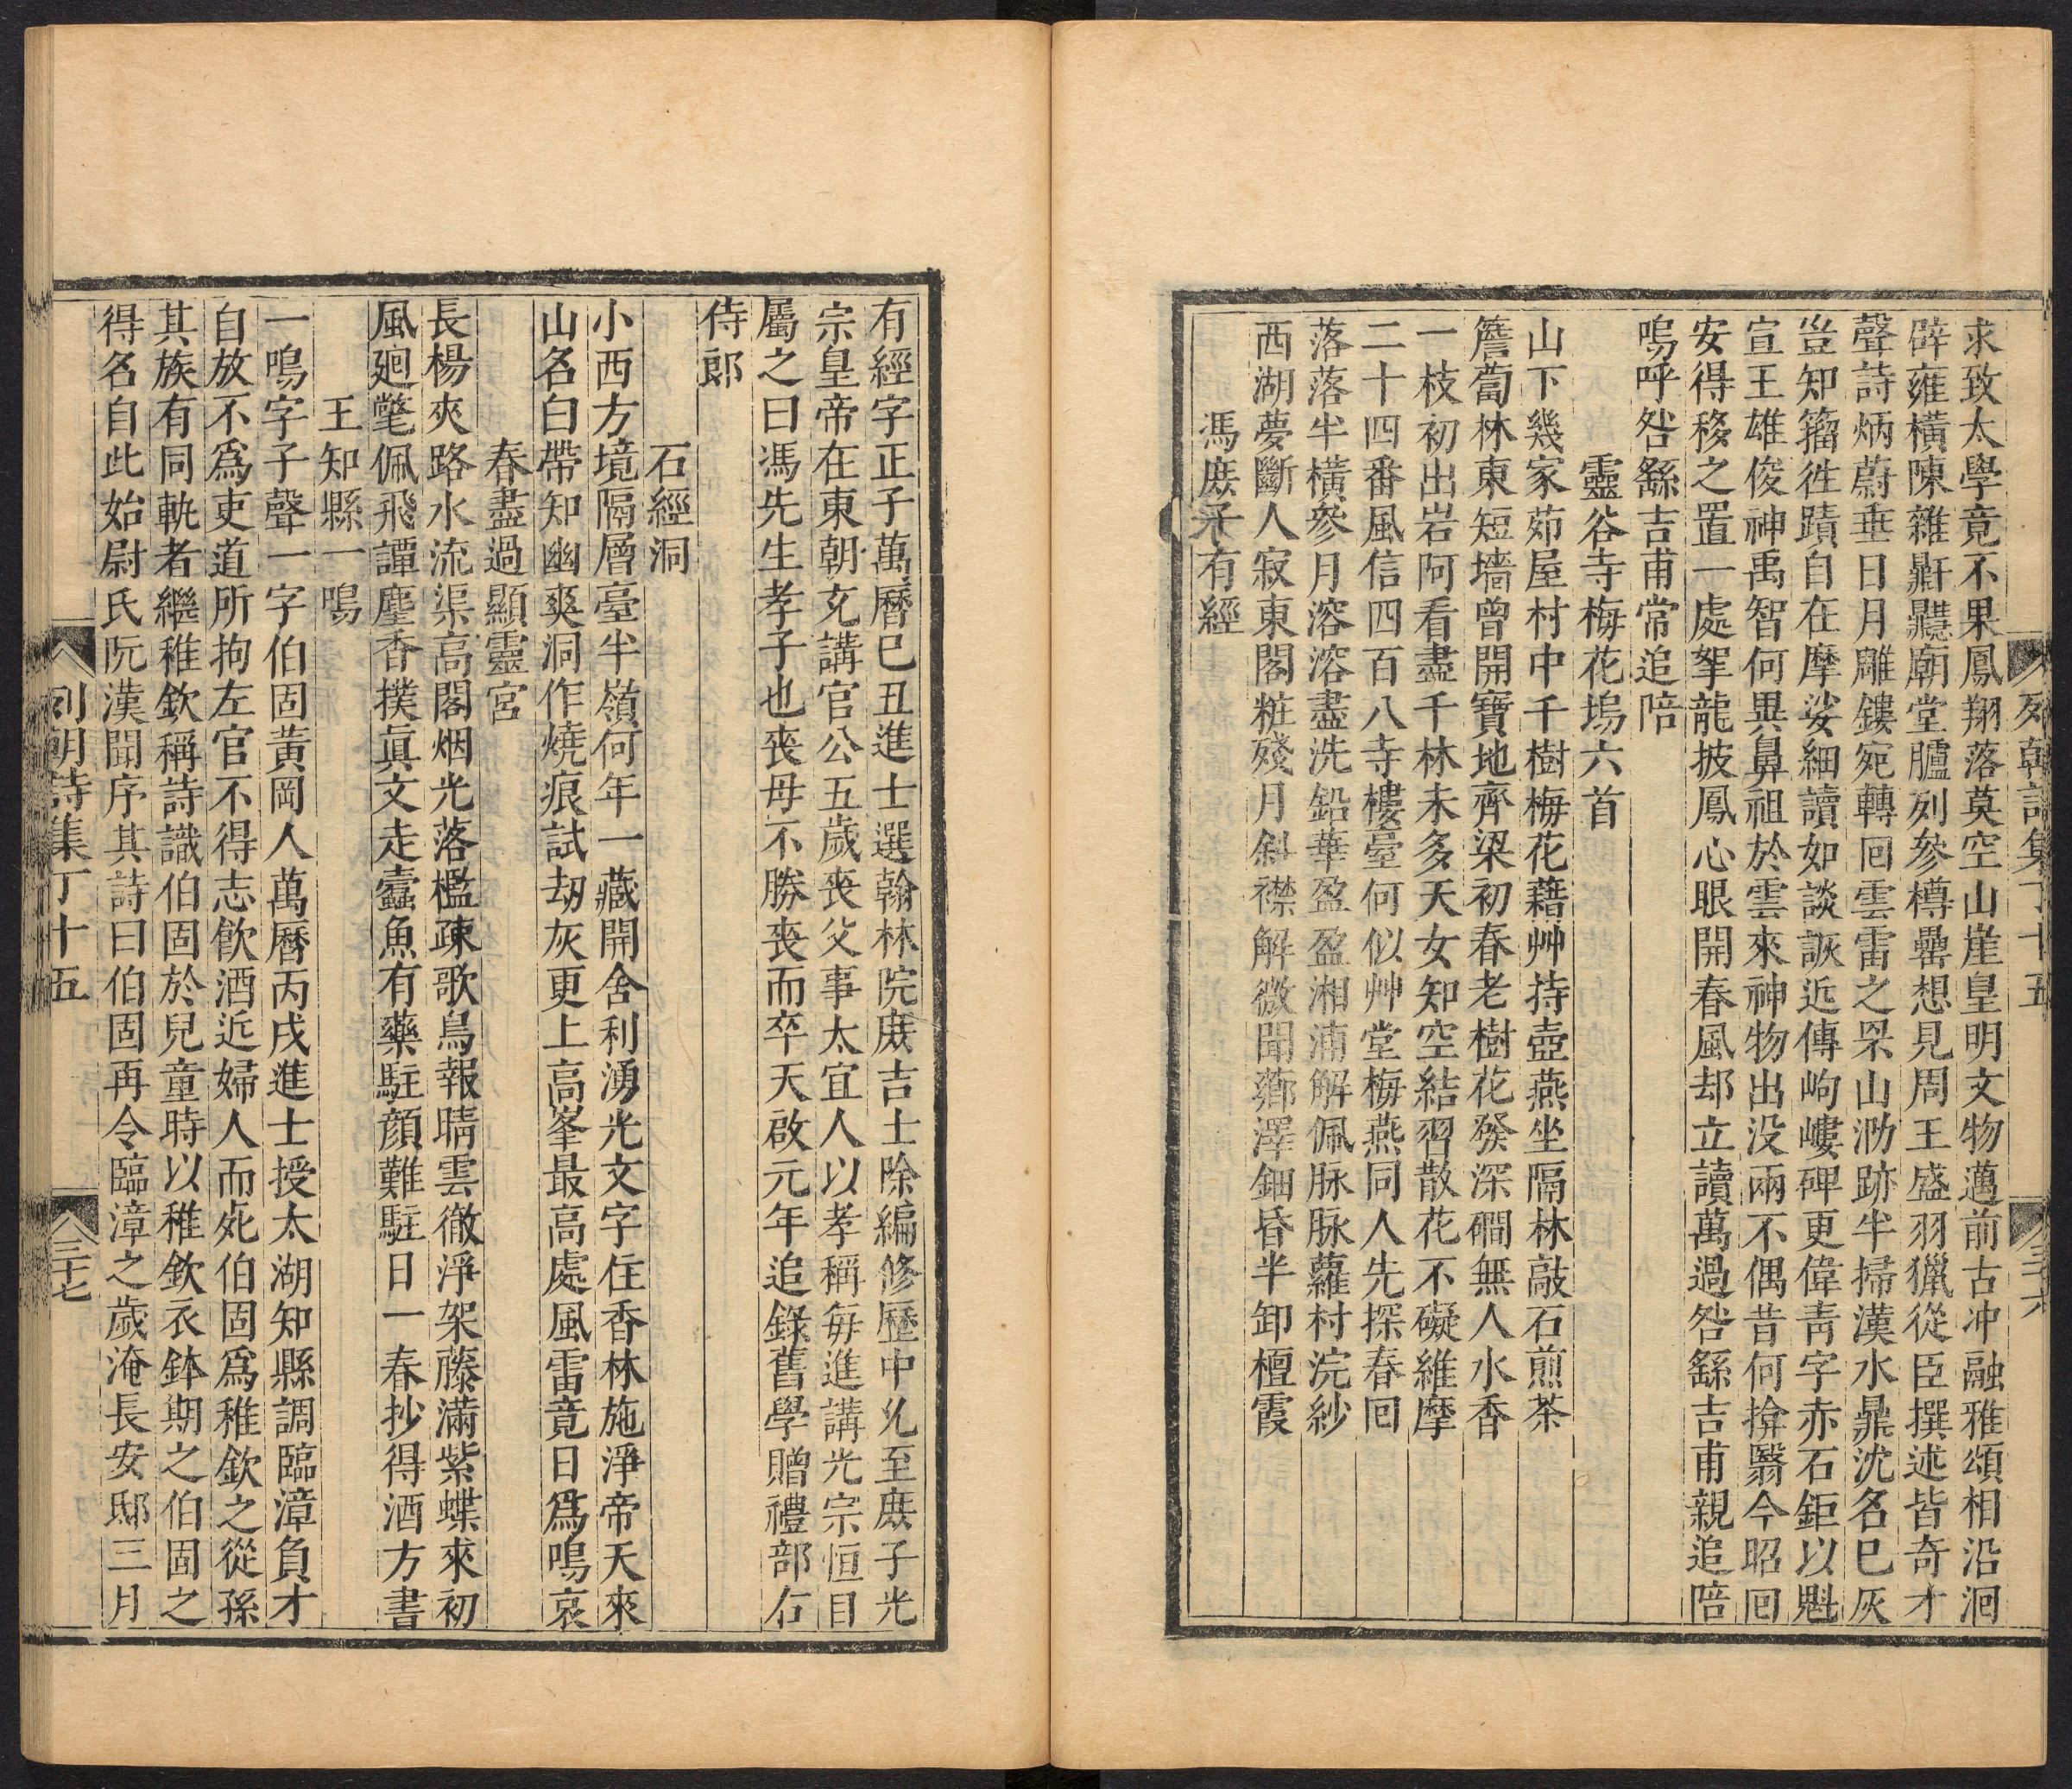 列朝詩集丁十五
三十六
求致太學竟不果鳳翔落莫空山崖皇明文物邁前古冲融雅頌相沿洄
辟雍橫陳雜鼾鼾廟堂臚列參樽罍想見周王盛羽獵從臣撰述皆奇才
聲詩炳蔚垂日月雕鏤宛轉囘雲雷之罘山泐跡半掃漢水鼎沈名已灰
豈知籀徃蹟自在摩娑細讀如談詼近傳岣嶁碑更偉靑字赤石鉅以魁
宣王雄俊神禹智何異鼻祖於雲來神物出没兩不偶昔何揜翳今昭囘
安得移之置一處挐龍披鳳心眼開春風却立讀萬過咎繇吉甫親追陪
嗚呼咎繇吉甫常追陪
靈谷寺梅花塢六首
山下幾家茆屋村中千樹梅花藉艸持壺燕坐隔林敲石煎茶
簷蔔林東短墻曾開寶地齊梁初春老樹花發深磵無人水香
一枝初出岩阿看盡千林未多天女知空結習散花不礙維摩
二十四番風信四百八寺樓臺何似艸堂梅燕同人先探春囘
落落半橫參月溶溶盡洗鉛華盈盈湘浦解佩脉脉蘿村浣紗
西湖夢斷人寂東閣粧殘月斜襟解微聞薌澤鈿昏半卸檀霞
馮庶子有經
有經字正子萬曆已丑進士選翰林院庶吉士除編修歷中允至庶子光
宗皇帝在東朝充講官公五歲喪父事太宜人以孝稱每進講光宗恒目
屬之曰馮先生孝子也喪母不勝喪而卒天啟元年追錄舊學贈禮部右
侍郎
石經洞
小西方境隔層臺半嶺何年一藏開舍利湧光文字住香林施淨帝天來
山名白帶知幽爽洞作燒痕試刼灰更上高峯最高處風雷竟日爲鳴哀
春盡過顯靈宮
長楊夾路水流渠高閣烟光落檻疎歌鳥報晴雲徹淨架藤滿紫蝶來初
風廻氅佩飛譚麈香撲眞文走蠹魚有藥駐顏難駐日一春抄得酒方書
王知縣一鳴
一鳴字子聲一字伯固黃岡人萬曆丙戌進士授太湖知縣調臨漳負才
自放不爲吏道所拘左官不得志飮酒近婦人而死伯固爲稚欽之從孫
其族有同軌者繼稚欽稱詩識伯固於兒童時以稚欽衣鉢期之伯固之
得名自此始尉氏阮漢聞序其詩曰伯固再令臨漳之歲淹長安邸三月
列朝詩集丁十五
三十七